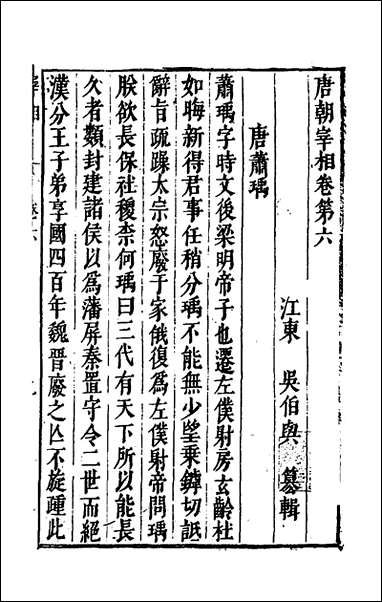 唐朝宰相卷第六
江東 吳伯與 纂輯
唐蕭瑀
蕭瑀字時文後梁明帝子也遷左僕射房玄齡杜
如晦新得君事任稍分瑀不能無少望乘罅切詆
辭旨疏躁太宗怒廢于家俄復爲左僕射帝問瑀
朕欲長保社稷柰何瑀曰三代有天下所以能長
久者類封建諸侯以爲藩屏秦置守令二世而絕
漢分王子弟享國四百年魏晉廢之亾不旋踵此